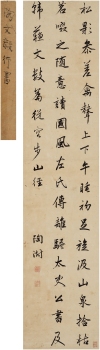 陶文毅行書
松影參差禽聲上下午睡初足旋汲山泉拾枯
茗啜之隨意讀國風左氏傳離騷太史公書及
韓蘇文數篇從容步山徑
陶澍